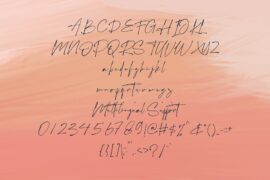 ABCDEFGHIJKL
MNOPQRSTUVWXYZ
abcdefghijkl
mnopqrstuvwxyz
Multilingual Support
0123456789!@#$%^&*(),.-+
{}[]:;"',.<>?/